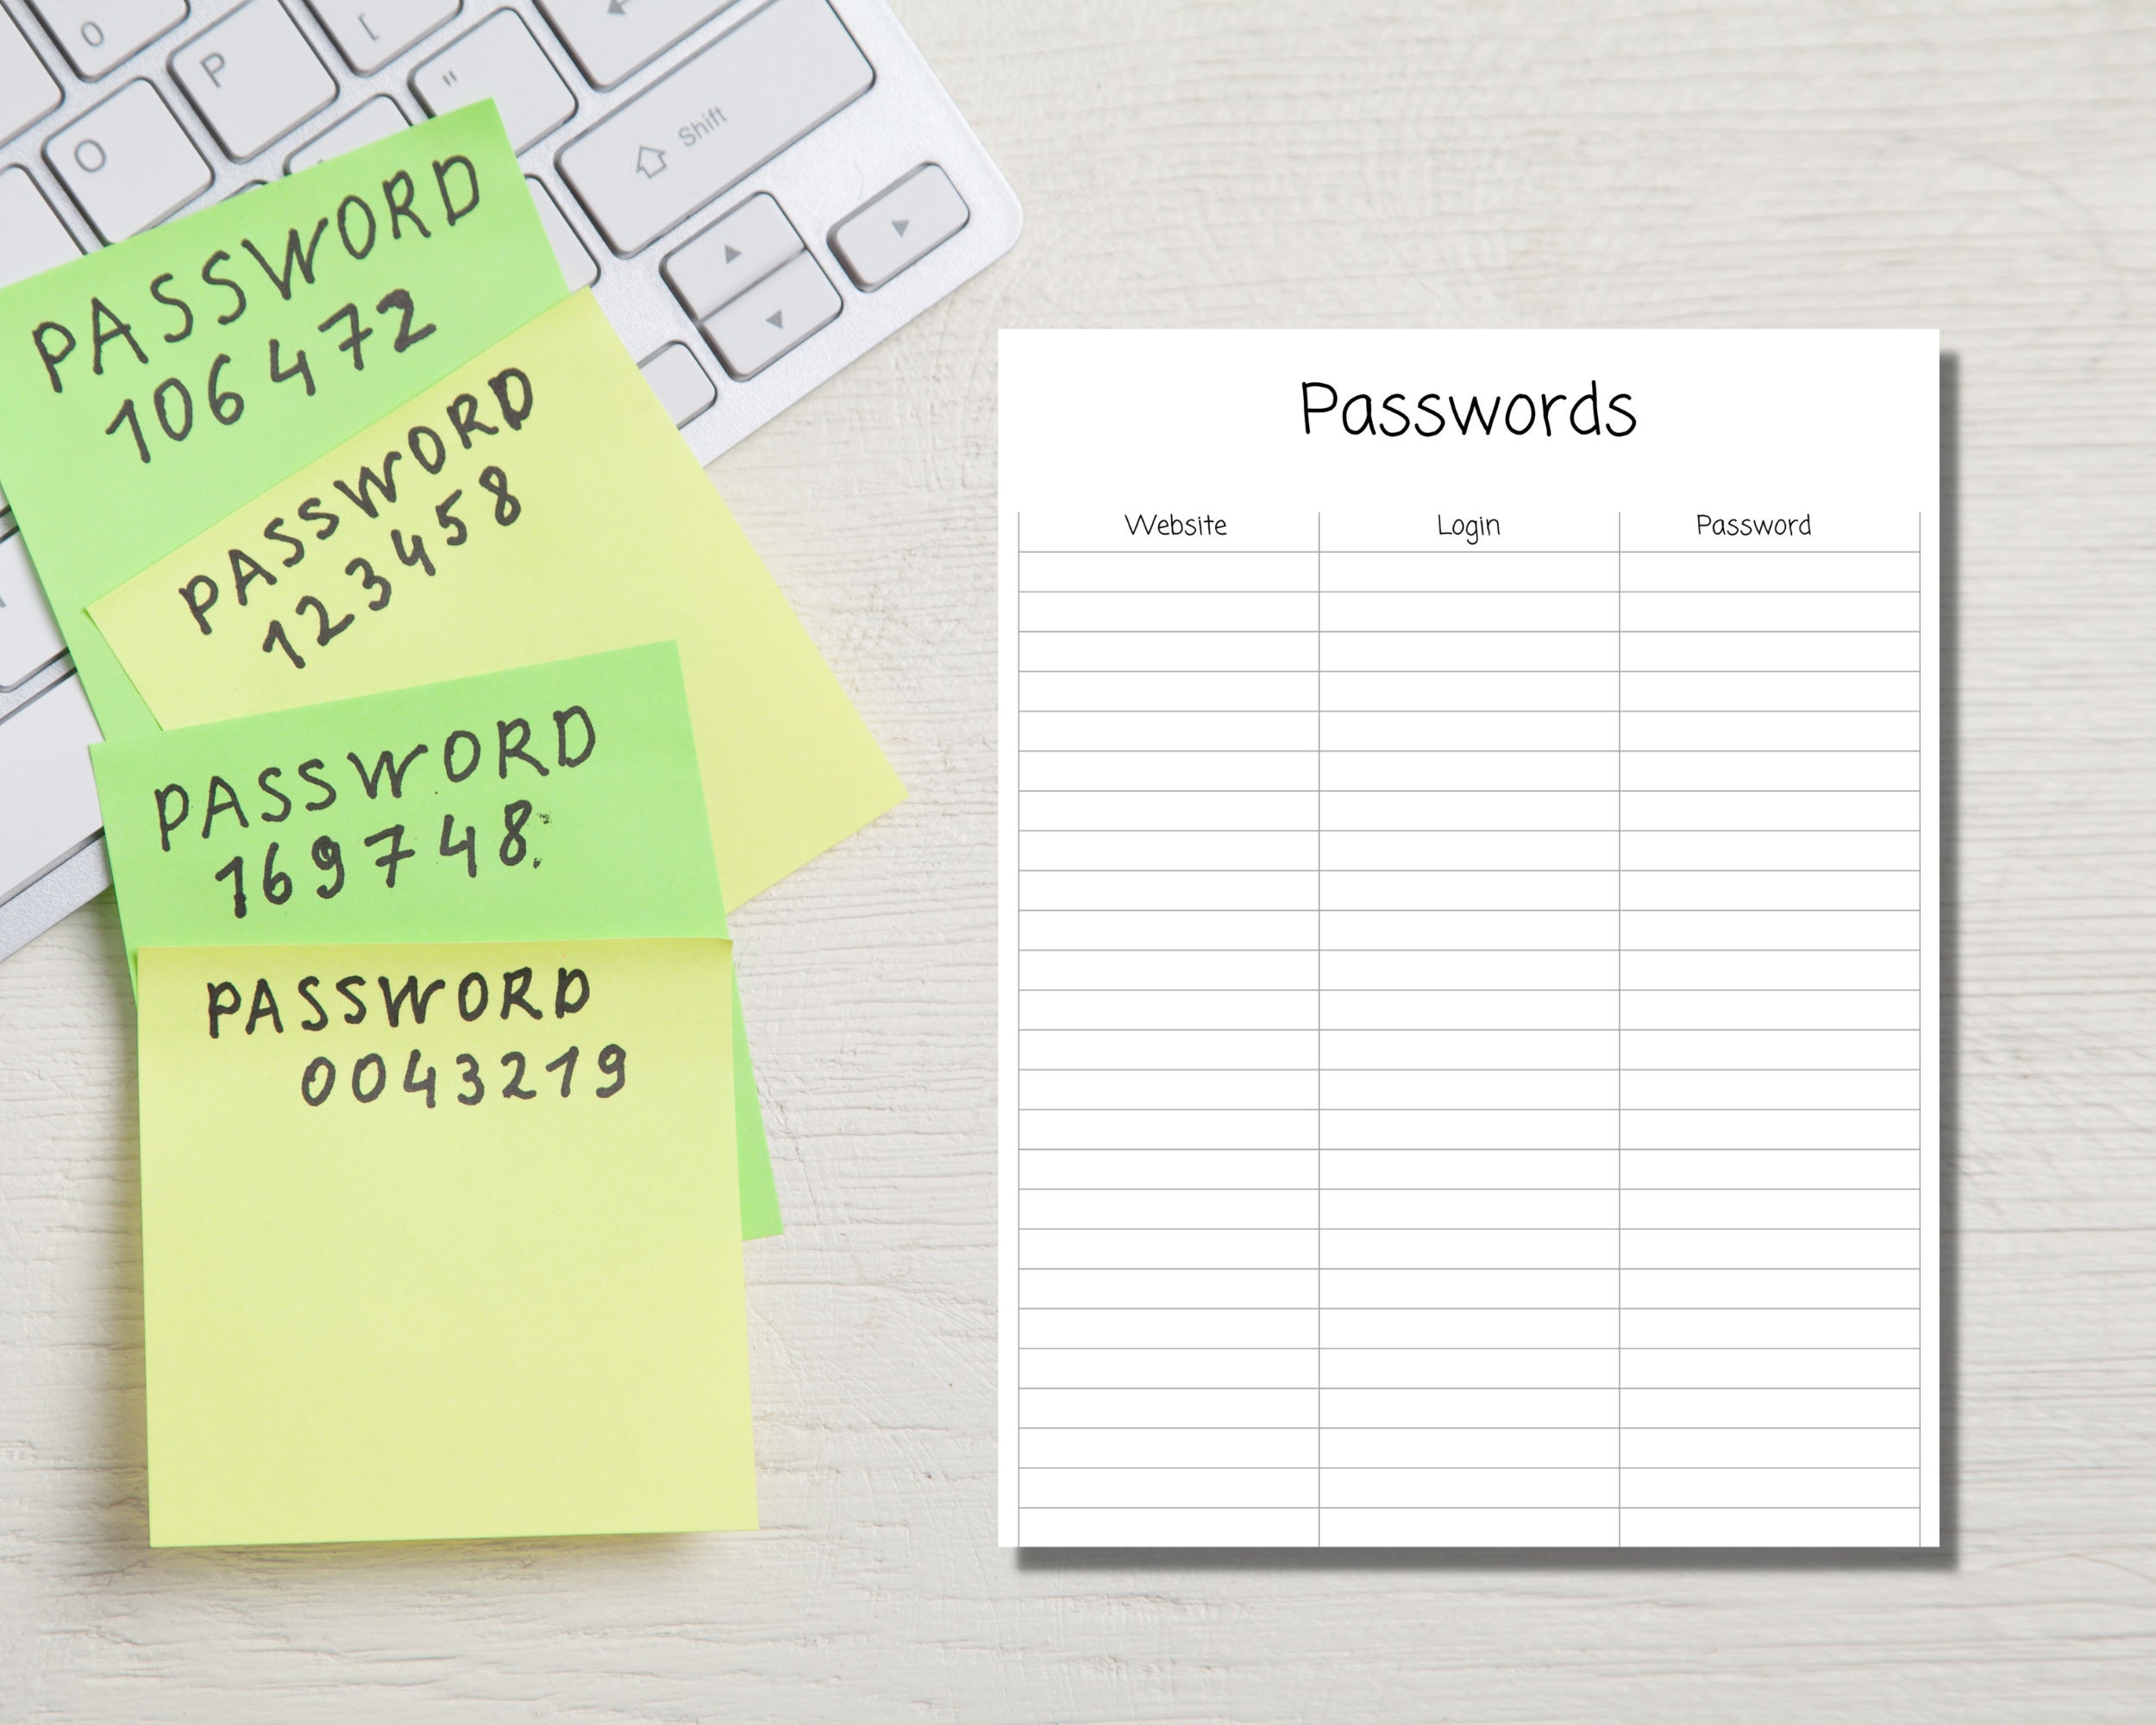 0
P
[
"
O
Shift
PASSWORD
106472
PASSWORD
123458
PASSWORD
169748
PASSWORD
0043219
Passwords
Website Login Password